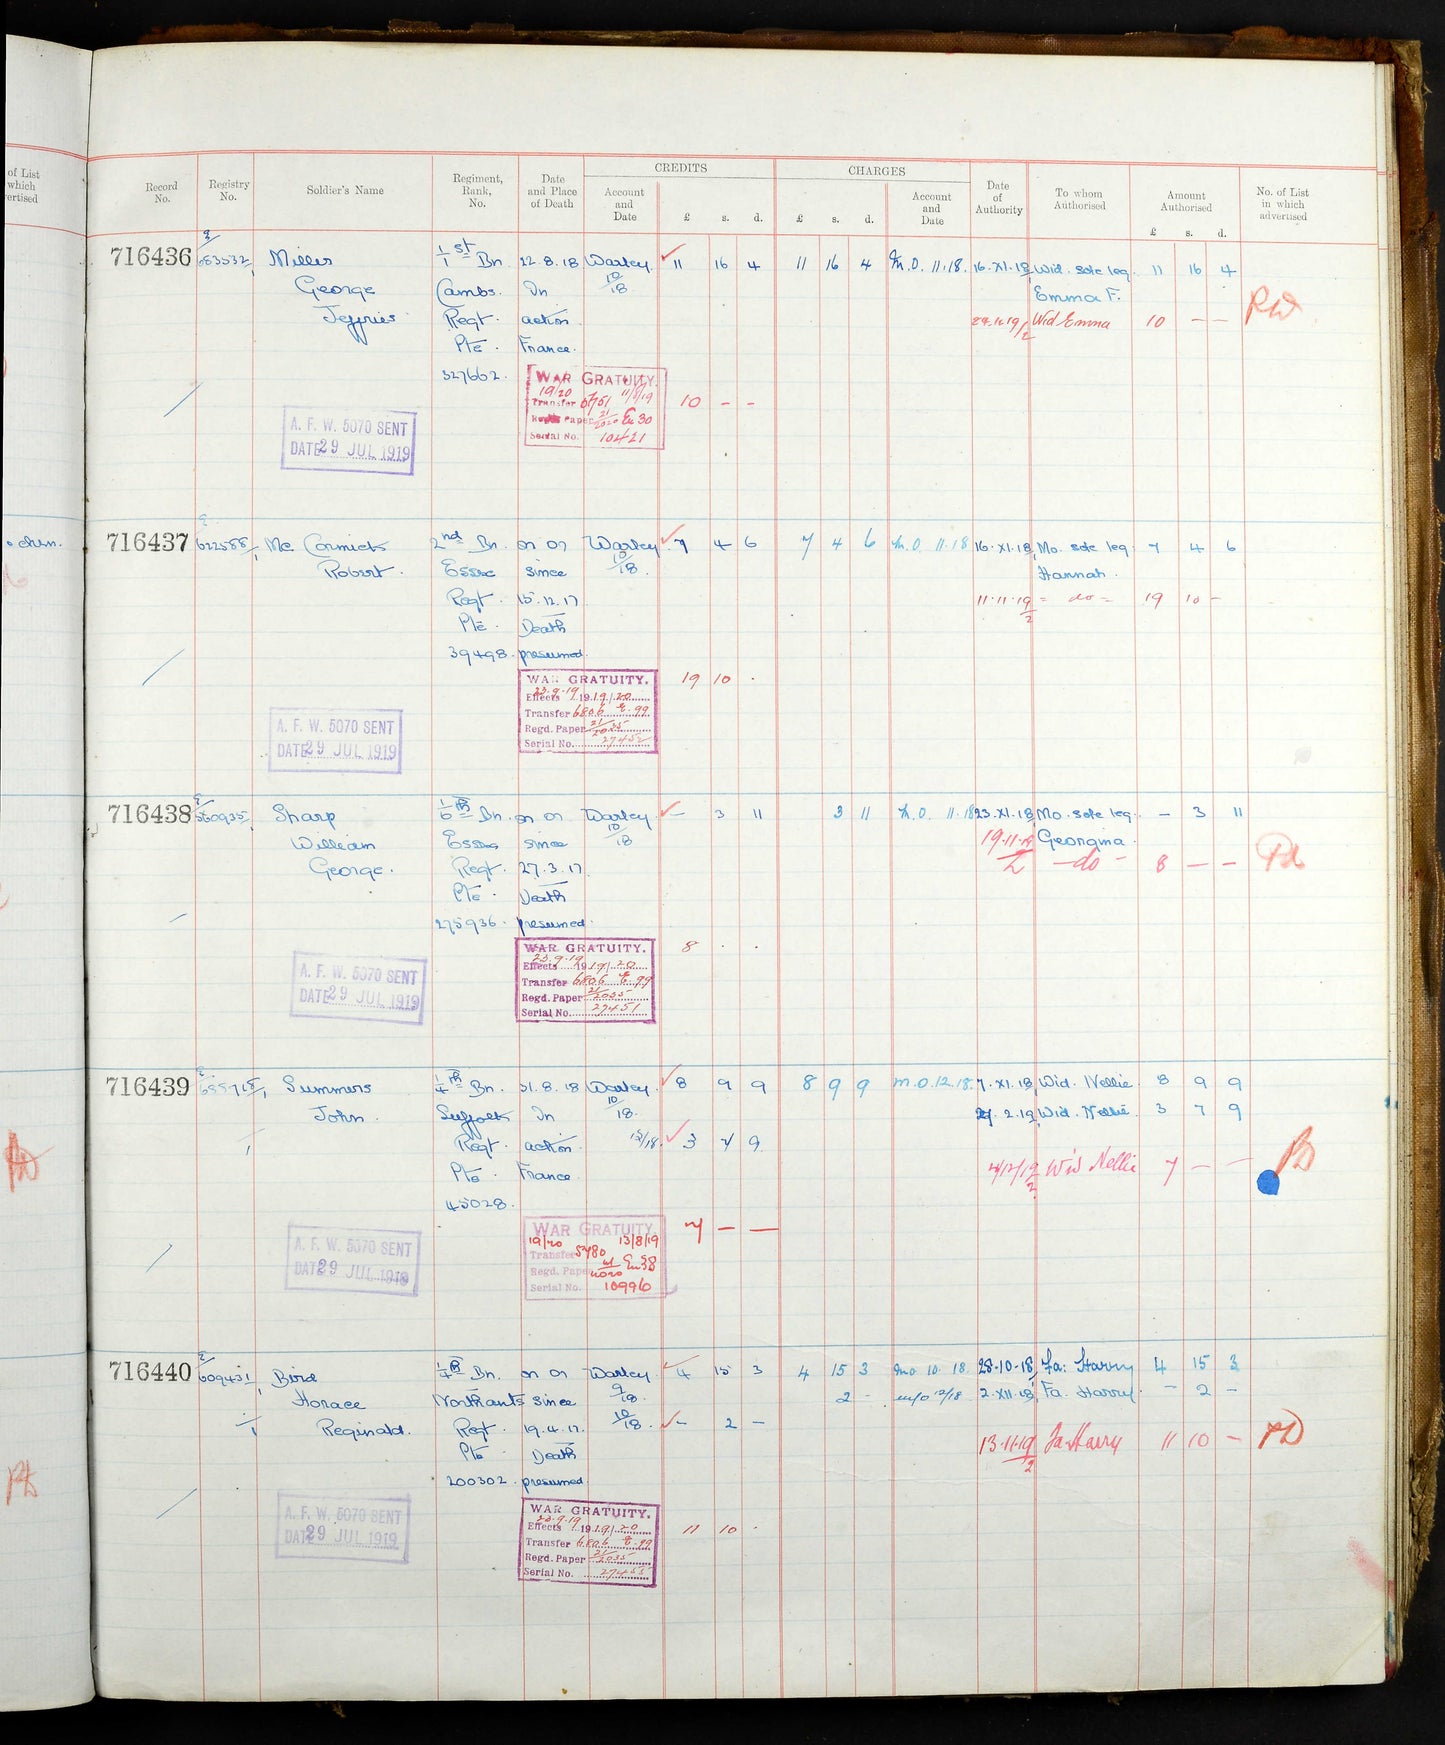 of List
which
vertised
Record No.
Registry No.
Soldier's Name
Regiment, Rank, No.
Date and Place of Death
CREDITS
Account and Date
£ s. d.
CHARGES
£ s. d.
Account and Date
Date of Authority
To whom Authorised
Amount Authorised
£ s. d.
No. of List in which advertised
716436 Miller 1/1st Bn. 22.8.18 Warley 11 16 4 11 16 4 M.O. 11.18. 16.XI.18 Wid. sole leg. 11 16 4
George Cambs. In 10/18 Emma F.
Jeffries Regt. action Wid Emma 10 — —
Pte. France.
327662.
WAR GRATUITY.
19/20 11/8/19
Transfer 10 — —
Paper
Serial No. 10421
A. F. W. 5070 SENT
DATE 29 JUL 1919
716437 622588/1 Mc Cormick 2nd Bn. on or Warley 7 4 6 7 4 6 M.O. 11.18 16.XI.18 Mo. sole leg. 7 4 6
Robert. Essex since 10/18. Hannah.
Regt. 15.12.17 11.11.19 = do = 19 10 —
Pte. Death
39498. presumed.
WAR GRATUITY. 19 10 .
23.9.19
Effects 1919/20
Transfer 6806 E.99
Regd. Paper 21/2035
Serial No. 27452
A. F. W. 5070 SENT
DATE 29 JUL 1919
716438 560935/1 Sharp 1/6th Bn. on or Warley — 3 11 3 11 M.O. 11.18 23.XI.18 Mo. sole leg. — 3 11
William Essex since 10/18 19.11.19 Georgina.
George. Regt. 27.3.17. 2 — do — 8 — —
Pte. Death
275936. presumed.
WAR GRATUITY. 8 . .
23.9.19
Effects 1919/20
Transfer 6806 E 99
Regd. Paper 21/2035
Serial No. 27451
A. F. W. 5070 SENT
DATE 29 JUL 1919
716439 Summers 1/4th Bn. 31.8.18 Warley 8 9 9 8 9 9 M.O. 12.18. 7.XI.18 Wid. Nellie. 8 9 9
John. Suffolk In 10/18. 2.19 Wid. Nellie. 3 7 9
Regt. action 12/18. 3 7 9
Pte. France. 4/12/19 Wid Nellie 7 — —
45028.
WAR GRATUITY. 7 — —
19/20 13/8/19
Transfer 5780
Regd. Paper E 38
Serial No. 10996
A. F. W. 5070 SENT
DATE 29 JUL 1919
716440 609431/1 Bird 1/4th Bn. on or Warley 4 15 3 4 15 3 Mo 10. 18. 28.10.18 Fa: Harry 4 15 3
Horace Northants since 9/18. 2 - m/o 12/18 2.XII.18 Fa. Harry. - 2 -
Reginald. Regt. 19.4.17. 10/18. - 2 -
Pte Death 13.11.19 Fa Harry 11 10 —
200302. presumed
WAR GRATUITY. 11 10 .
23.9.19
Effects 1919/20
Transfer 6806 E.99
Regd. Paper 21/2035
Serial No. 27455
A. F. W. 5070 SENT
DATE 29 JUL 1919